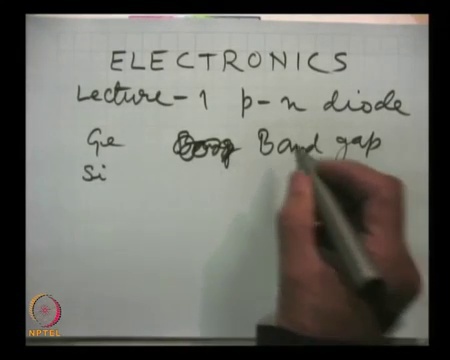 ELECTRONICS
Lecture-1 p-n diode
Ge Band gap
Si
NPTEL